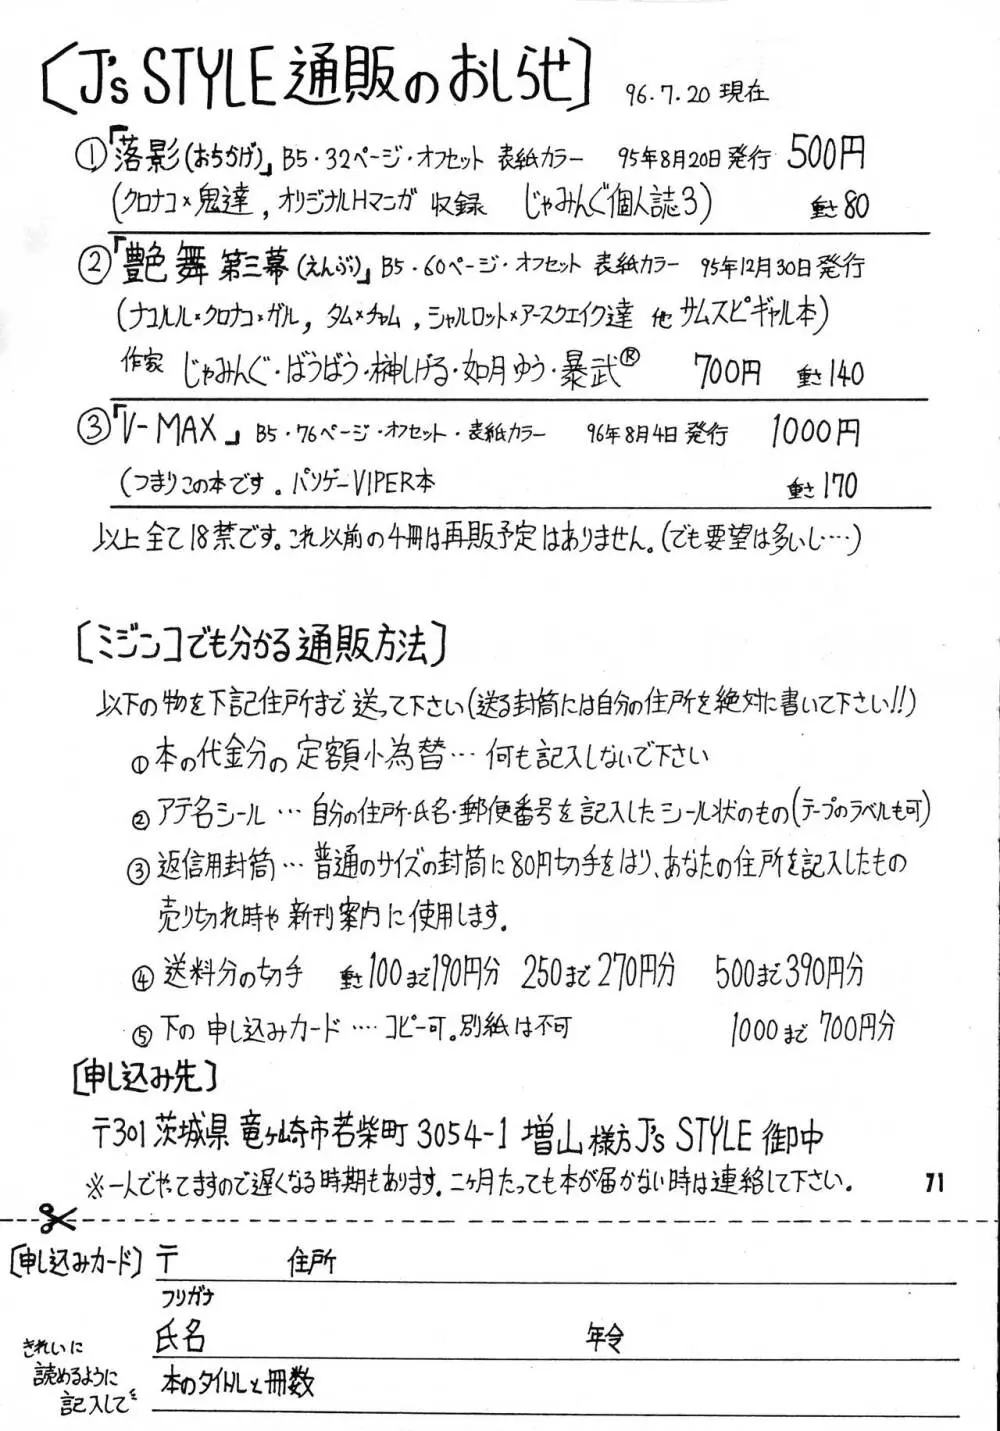 ［J's STYLE 通販のおしらせ］ 96.7.20 現在
①「落影(おちかげ)」B5・32ページ・オフセット 表紙カラー 95年8月20日発行 500円
(クロナコ×鬼達, オリジナルHマンガ 収録 じゃみんぐ個人誌3) 重さ80
②「艶舞 第三幕(えんぶ)」B5・60ページ・オフセット 表紙カラー 95年12月30日発行
(ナコルル×クロナコ×ガル, タム×チャム, シャルロット×アースクエイク達 他 サムスピギャル本)
作家 じゃみんぐ・ばうばう・榊しげる・如月ゆう・暴武® 700円 重さ140
③「V-MAX」B5・76ページ・オフセット・表紙カラー 96年8月4日発行 1000円
(つまりこの本です。パソゲーVIPER本 重さ170
以上全て18禁です。これ以前の4冊は再販予定はありません。(でも要望は多いし‥‥)
［ミジンコでも分かる通販方法］
以下の物を下記住所まで送って下さい(送る封筒には自分の住所を絶対に書いて下さい!!)
①本の代金分の定額小為替… 何も記入しないで下さい
②アテ名シール … 自分の住所・氏名・郵便番号を記入したシール状のもの(テープのラベルも可)
③返信用封筒… 普通のサイズの封筒に80円切手をはり、あなたの住所を記入したもの
売り切れ時や新刊案内に使用します。
④送料分の切手 重さ100まで190円分 250まで270円分 500まで390円分
⑤下の申し込みカード‥‥コピー可。別紙は不可 1000まで700円分
［申し込み先］
〒301 茨城県竜ヶ崎市若柴町3054-1 増山様方J's STYLE 御中
※一人でやってますので遅くなる時期もあります。二ヶ月たっても本が届かない時は連絡して下さい。 71
［申し込みカード］ 〒 住所
フリガナ
氏名 年令
きれいに
読めるように
記入してくだ
本のタイトルと冊数